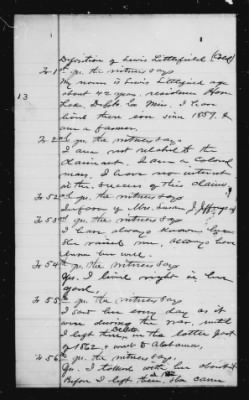 Deposition of Lewis Littlefield (Cold)
To 1st qr. the witness says
My name is Lewis Littlefield age
about 42 years, residence Horn
Lake, DeSoto Co Miss. I have
lived there ever since 1859. &
am a farmer.
13
To 2nd qr. the witness says.
I am not related to the
claimant. I am a Colored
man. I have no interest
in the success of this claim
To 52nd qr. the witness says
In favor of Mrs. Susan J.
To 53rd qr. the witness says
I have always known her
She raised me, always have
known her well.
To 54th qr. the witness says
Yes. I lived right in her
yard.
To 55th qr. the witness says
I saw her every day as it
were during the war, until
I left there, in the latter part
of 1862, & went to Alabama,
To 56th qr. the witness says.
Yes. I talked with her about it
Before I left there. She came